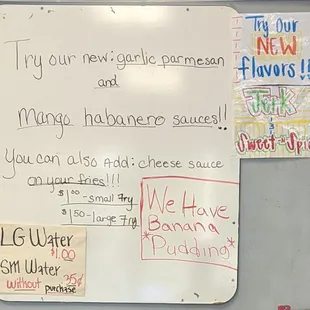 Try our new: garlic parmesan
and
Mango habanero sauces!!
You can also Add: cheese sauce
on your fries!!!
$1.00 -small fry
$1.50 -large fry
We Have
Banana
*Pudding*
LG Water
$1.00
SM Water
35¢
without purchase
Try our
NEW
flavors!!
Jerk
&
Sweet-n-Spicy